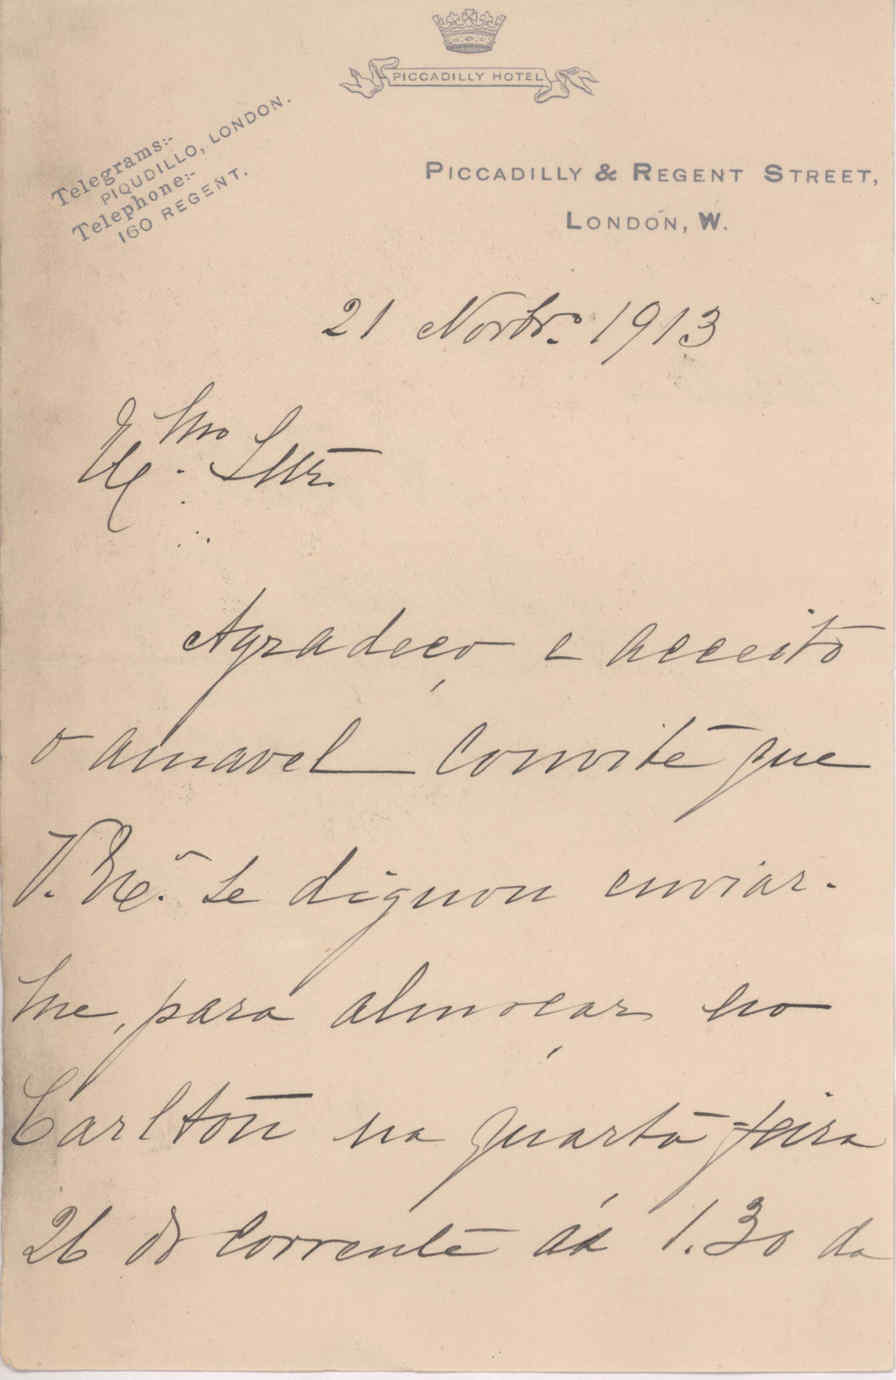 PICCADILLY HOTEL
Telegrams:-
PIQUDILLO, LONDON.
Telephone:-
160 REGENT.
PICCADILLY & REGENT STREET,
LONDON, W.
21 Novbrº 1913
Exmo Snr.
Agradeço e acceito
o amavel convite que
V. Exª. se dignou enviar-
me, para almoçar no
Carlton na quarta-feira
26 do corrente ás 1.30 da